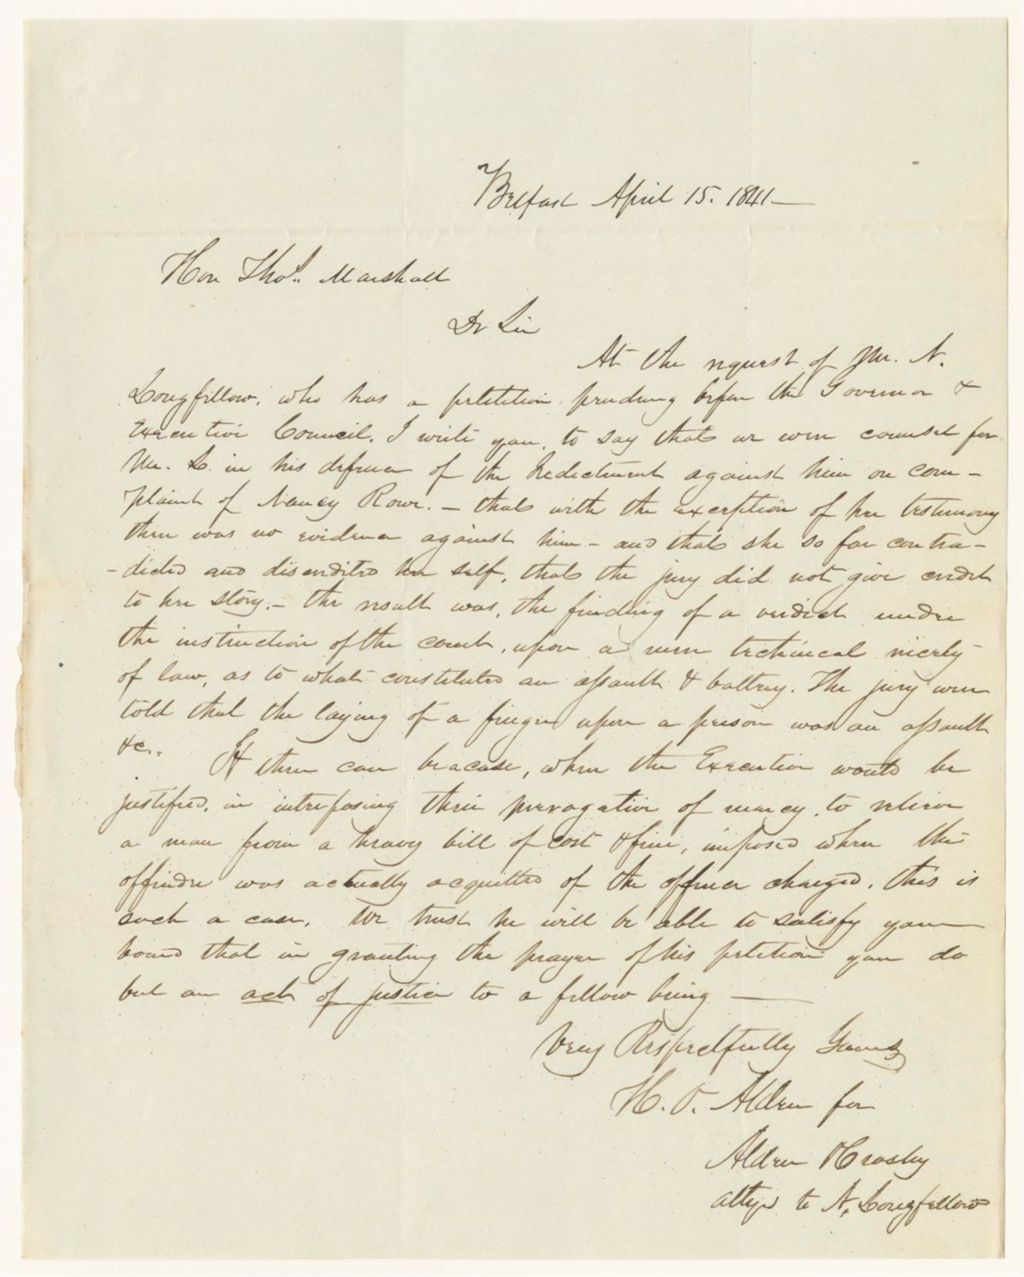 Belfast April 15. 1841—
Hon Thos. Marshall
Dr Sir
At the request of Mr. N.
Longfellow, who has a petition pending before the Governor &
Executive Council, I write you, to say that we were counsel for
Mr. L. in his defence of the Indictment against him on com-
plaint of Nancy Rowe. — that with the exception of her testimony
there was no evidence against him — and that she so far contra-
-dicted and discredited her self, that the jury did not give credit
to her story. — the result was, the finding of a verdict under
the instruction of the court, upon a mere technical nicety
of law, as to what constituted an assault & battery. The jury were
told that the laying of a finger upon a person was an assault
&c. If there can be a case, when the Executive would be
justified, in interposing their prerogative of mercy, to relieve
a man from a heavy bill of cost & fine, imposed when the
offender was actually acquitted of the offence charged, this is
such a case. We trust he will be able to satisfy your
board that in granting the prayer of his petition you do
but an act of justice to a fellow being —
Very Respectfully Yours
H. O. Alden for
Alden & Crosby
attys to N. Longfellow